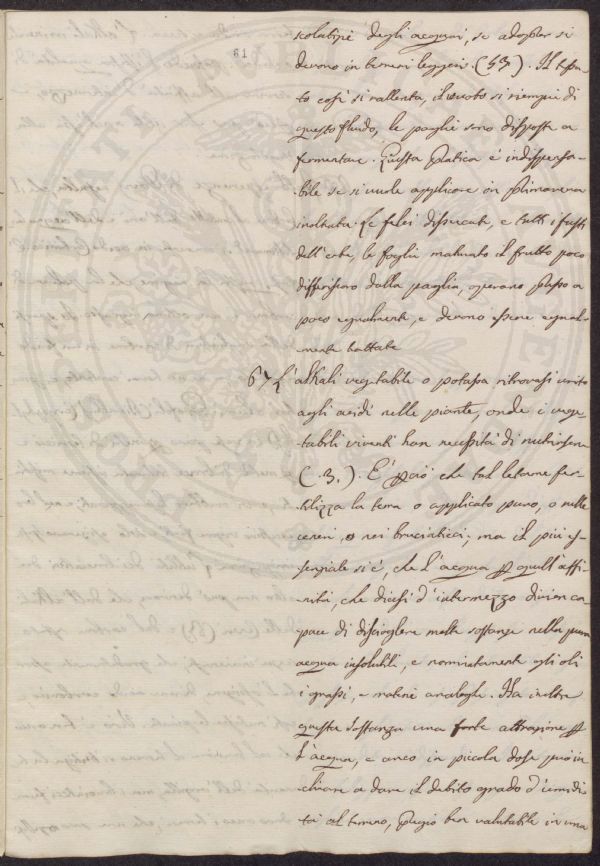 81
scolaticci degli acquai, se adopler si
devono in terreni leggeri. (53). Il tessu-
to così si rallenta, il vuoto si riempie di
questo fluido, le paglie sono disposte a
fermentare. Questa pratica è indispensa-
bile se si vuole applicare in primavera
inoltrata. Le felci disseccate, e tutti i fusti
dell'erbe, le foglie maturato il frutto poco
differiscono dalla paglia, operano passo a
poco egualmente, e devono essere egual-
mente trattate
67 L'alkali vegetabile o potassa ritrovasi unito
agli acidi nelle piante, onde i vege-
tabili viventi han necessità di nutrirsene
(.3.). È perciò che tal letame fer-
tilizza la terra o applicato puro, o nelle
ceneri, o nei bruciaticci; ma il più es-
senziale si è, che l'acqua per quell'affi-
nità, che dicesi d'intermezzo divien ca-
pace di disciogliere molte sostanze nella pura
acqua insolubili, e nominatamente agli oli
i grassi, e materie analoghe. Ha inoltre
questa sostanza una forte attrazione per
l'acqua, e anco in piccola dose può in
chinare a dare il debito grado d'umidi
tà al terreno, pregio ben valutabile in una